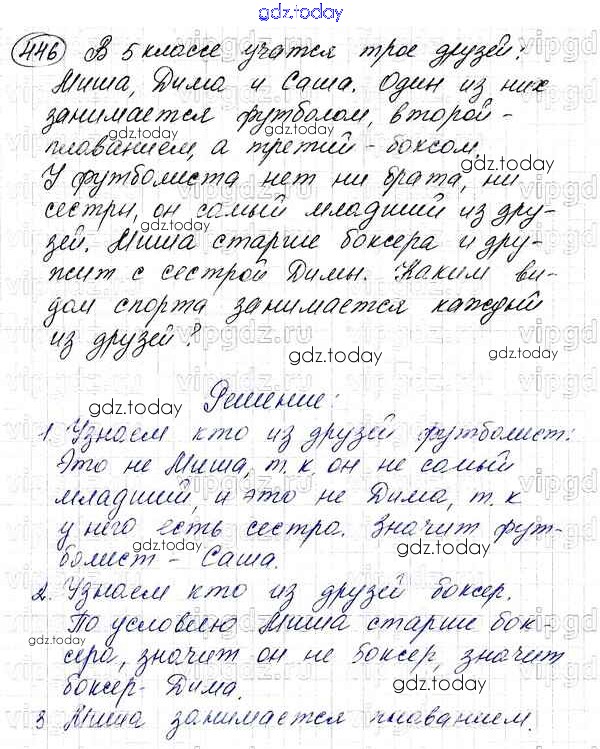 gdz.today
446 В 5 классе учатся трое друзей:
Миша, Дима и Саша. Один из них
занимается футболом, второй -
gdz.today gdz.today
плаванием, а третий - боксом.
gdz.today
У футболиста нет ни брата, ни
сестры, он самый младший из дру-
зей. Миша старше боксера и дру-
жит с сестрой Димы. Каким ви-
gdz.today
дом спорта занимается каждый
из друзей?
gdz.today gdz.today
gdz.today Решение:
1. Узнаем кто из друзей футболист:
gdz.today
Это не Миша, т.к он не самый
младший, и это не Дима, т.к
у него есть сестра. Значит фут-
болист - Саша.
gdz.today gdz.today
2. Узнаем кто из друзей боксер.
По условию Миша старше бок-
gdz.today
сера, значит он не боксер, значит
боксер - Дима.
gdz.today
3 Миша занимается плаванием.